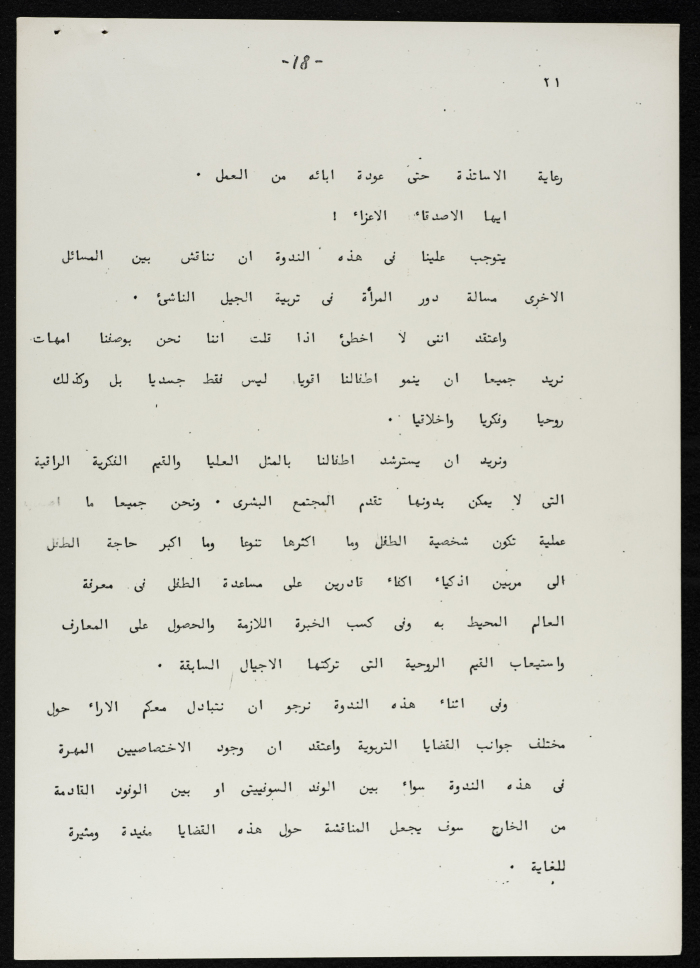 -18-
٢١
رعاية الاساتذة حتى عودة ابائه من العمل .
ايها الاصدقاء الاعزاء !
يتوجب علينا فى هذه الندوة ان نناقش بين المسائل
الاخرى مسالة دور المرأة فى تربية الجيل الناشئ .
واعتقد اننى لا اخطئ اذا قلت اننا نحن بوصفنا امهات
نريد جميعا ان ينمو اطفالنا اقوياء ليس فقط جسديا بل وكذلك
روحيا وفكريا واخلاقيا .
ونريد ان يسترشد اطفالنا بالمثل العليا والقيم الفكرية الراقية
التى لا يمكن بدونها تقدم المجتمع البشرى . ونحن جميعا ما
عملية تكون شخصية الطفل وما اكثرها تنوعا وما اكبر حاجة الطفل
الى مربين اذكياء اكفاء قادرين على مساعدة الطفل فى معرفة
العالم المحيط به وفى كسب الخبرة اللازمة والحصول على المعارف
واستيعاب القيم الروحية التى تركتها الاجيال السابقة .
وفى اثناء هذه الندوة نرجو ان نتبادل معكم الاراء حول
مختلف جوانب القضايا التربوية واعتقد ان وجود الاختصاصيين المهرة
فى هذه الندوة سواء بين الوفد السوفييتى او بين الوفود القادمة
من الخارج سوف يجعل المناقشة حول هذه القضايا مفيدة ومثيرة
للغاية .